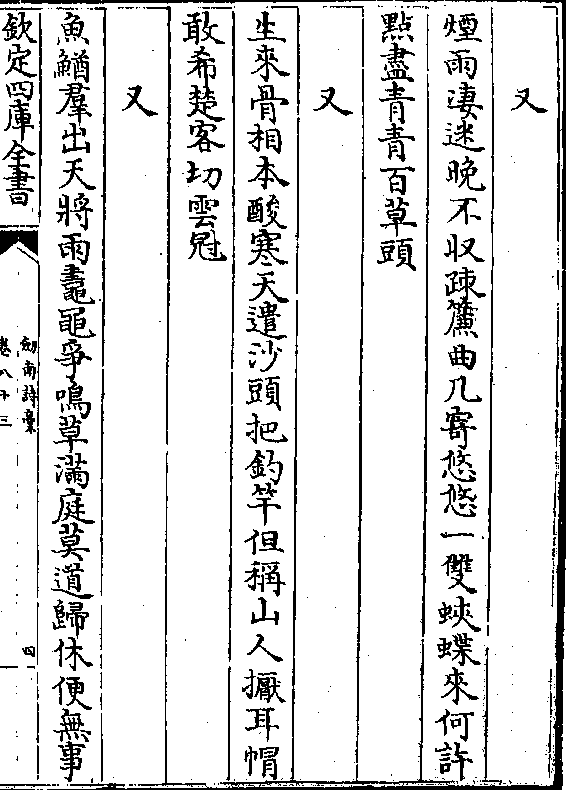 又
煙雨凄迷晩不収疎簾曲几寄悠悠一雙蛺蝶來何許
點盡青青百草頭
又
生來骨相本酸寒天遣沙頭把釣竿但稱山人擫耳帽
敢希楚客切雲冠
又
魚鰌羣出天將雨鼃黽爭鳴草滿庭莫道歸休便無事
欽定四庫全書
劒南詩稾
卷八十三
四